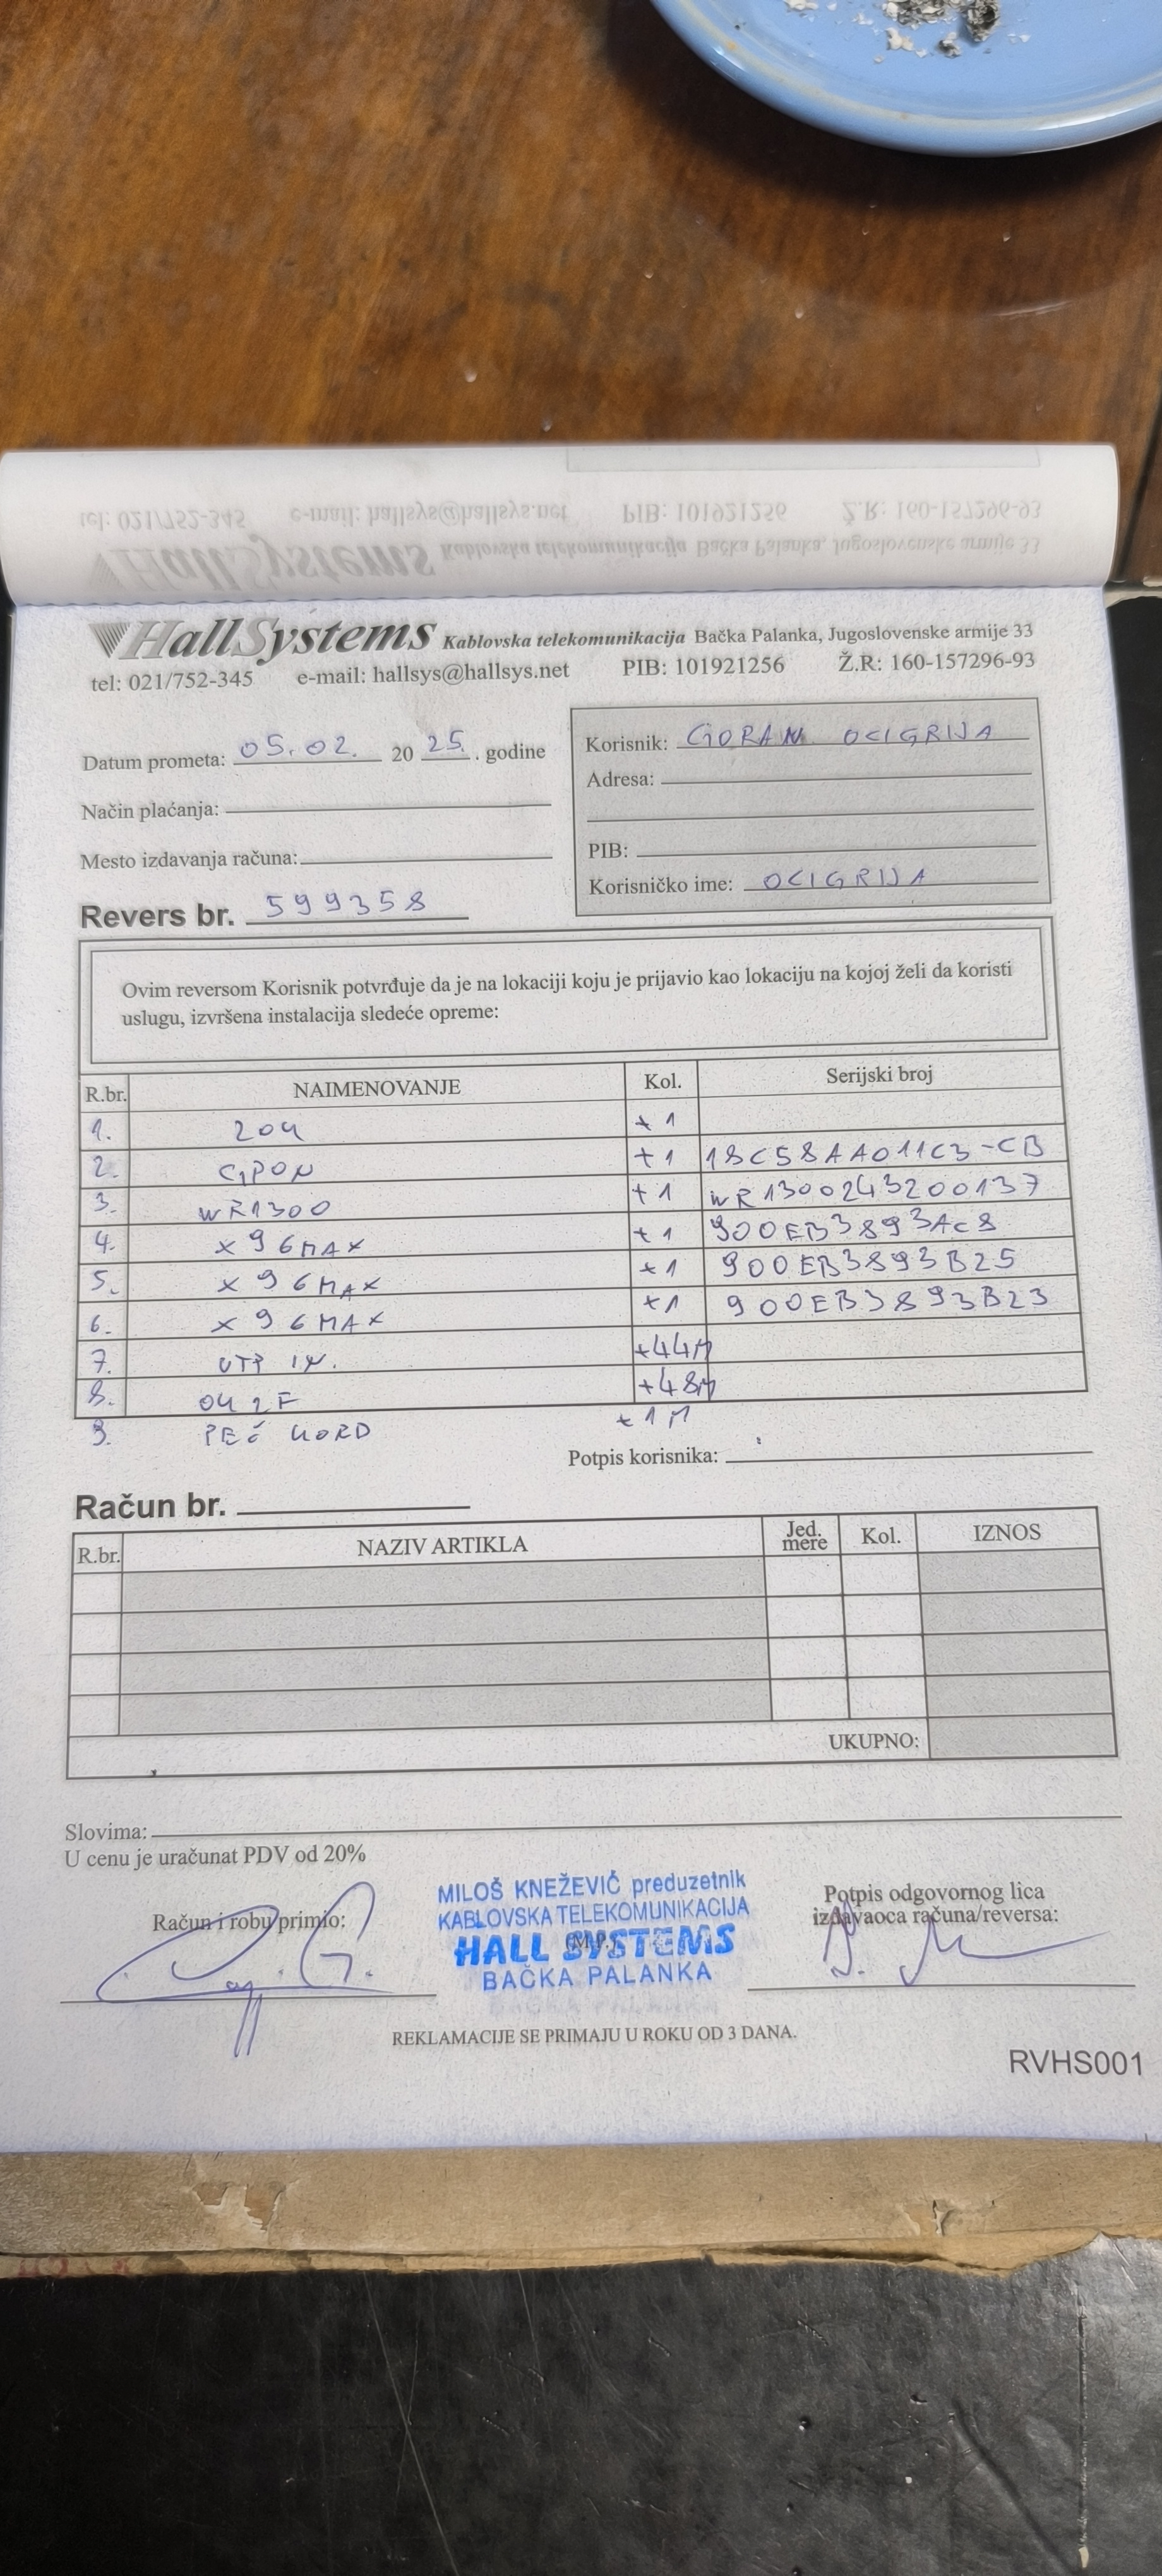 HallSystems Kablovska telekomunikacija Bačka Palanka, Jugoslovenske armije 33
tel: 021/752-345 e-mail: hallsys@hallsys.net PIB: 101921256 Ž.R: 160-157296-93
Datum prometa: 05.02. 20 25. godine
Korisnik: GORAN OCIGRIJA
Adresa:
Način plaćanja:
Mesto izdavanja računa:
PIB:
Korisničko ime: OCIGRIJA
Revers br. 599358
Ovim reversom Korisnik potvrđuje da je na lokaciji koju je prijavio kao lokaciju na kojoj želi da koristi
uslugu, izvršena instalacija sledeće opreme:
R.br. NAIMENOVANJE Kol. Serijski broj
1. +1
2. GPON +1 18C58AA011C3-CB
3. WR1300 +1 WR1300243200137
4. X96MAX +1 900EB3893AC8
5. X96MAX +1 900EB3893B25
6. X96MAX +1 900EB3893B23
7. UTP +44M
8. OK 2F +48M
9. PEČ KORD +1M
Potpis korisnika:
Račun br.
R.br. NAZIV ARTIKLA Jed. mere Kol. IZNOS
UKUPNO:
Slovima:
U cenu je uračunat PDV od 20%
Račun i robu primio:
MILOŠ KNEŽEVIĆ preduzetnik
KABLOVSKA TELEKOMUNIKACIJA
(M.P.)
HALL SYSTEMS
BAČKA PALANKA
Potpis odgovornog lica
izdavaoca računa/reversa:
REKLAMACIJE SE PRIMAJU U ROKU OD 3 DANA.
RVHS001